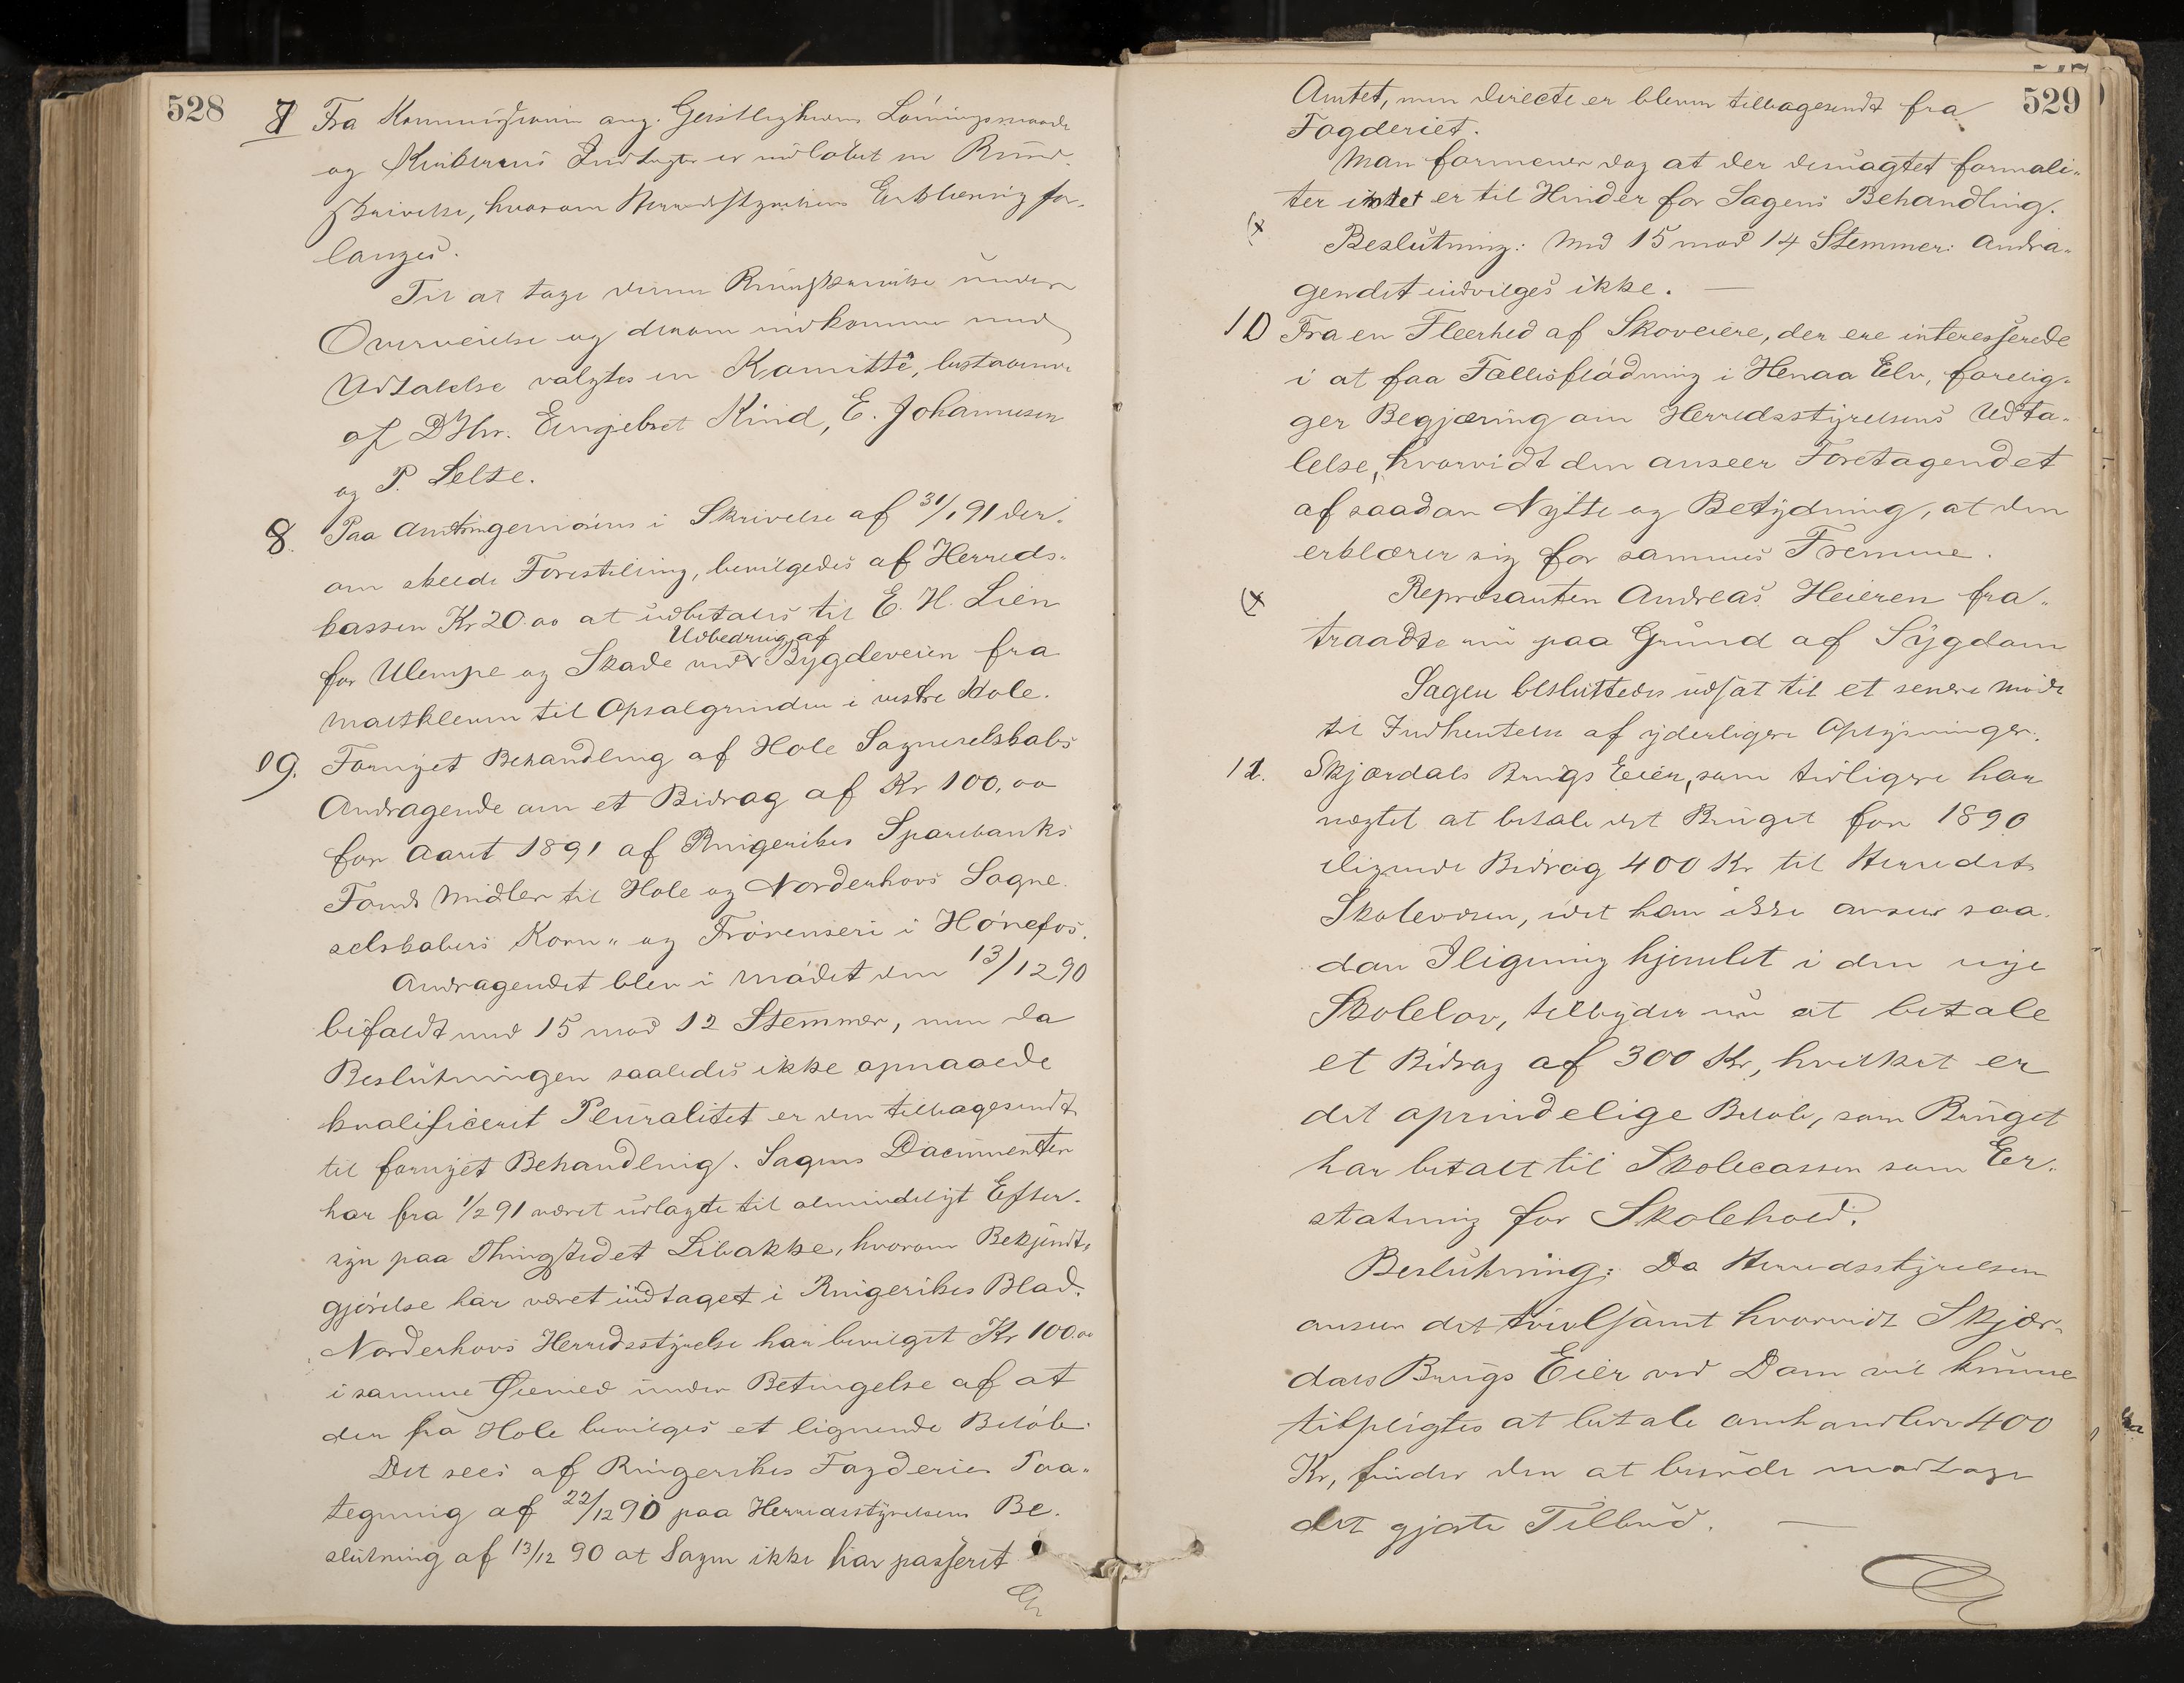 528
7 Fra Kommissionen ang. Geistlighedens Lönningsmaade
og Kirkernes Indtægter er udløbet en Rund-
skrivelse, hvorom Herredsstyrelsens Erklæring for-
langes.
Til at tage denne Rundskrivelse under
Overveielse og derom indkomme med
Udtalelse valgtes en Komitté, bestaaende
af DHrr. Engebret Rind, E. Johannesen
og P. Selte.
8. Paa Amtsingeniörens i Skrivelse af 31/1 91 der-
om skeede Forestilling, bevilgedes af Herreds-
kassen Kr 20.00 at udbetales til E. H. Lien
for Ulempe og Skade ved Udbedring af Bygdeveien fra
til Opsalgrinden i vestre Hole.
9. Fornyet Behandling af Hole Sogneselskabs
Andragende om et Bidrag af Kr 100,00
for Aaret 1891 af Ringerikes Sparebanks
Fonds Midler til Hole og Norderhovs Sogne-
selskabers Korn- og Frörenseri i Hönefos.
Andragendet blev i Mödet den 13/12 90
bifaldt med 15 mod 12 Stemmer, men da
Beslutningen saaledes ikke opnaaede
kvalificerit Pluralitet er den tilbagesendt
til fornyet Behandling. Sagens Documenter
har fra 1/2 91 været udlagte til almindeligt Efter-
syn paa Thingstedet Libakke, hvorom Bekjendt-
gjörelse har været indtaget i Ringerikes Blad.
Norderhovs Herredsstyrelse har bevilget Kr 100.00
i samme Öiemed under Betingelse af at
der fra Hole bevilges et lignende Belöb.
Det sees af Ringerikes Fogderies Paa-
tegning af 22/12 90 paa Herredsstyrelsens Be-
slutning af 13/12 90 at Sagen ikke har passeret
529
Amtet, men directe er bleven tilbagesendt fra
Fogderiet.
Man formener dog at der desuagtet formali-
ter intet er til Hinder for Sagens Behandling.
(x Beslutning: Med 15 mod 14 Stemmer: Andra-
gendet indvilges ikke. —
10 Fra en Fleerhed af Skoveiere, der ere interesserede
i at faa Fællesflödning i Henaa Elv, forelig-
ger Begjæring om Herredsstyrelsens Udta-
lelse, hvorvidt den anseer Foretagendet
af saadan Nytte og Betydning, at den
erklærer sig for sammes Fremme.
(x Repræsanten Andreas Heieren fra-
traadte nu paa Grund af Sygdom
Sagen besluttedes udsat til et senere Möde
til Indhentelse af yderligere Oplysninger.
11. Skjærdals Brugs Eier, som tidligere har
nægtet at betale det Bruget for 1890
ilignede Bidrag 400 Kr til Herredets
Skolevæsen, idet han ikke anseer saa-
dan Iligning hjemlet i den nye
Skolelov, tilbyder nu at betale
et Bidrag af 300 Kr, hvilket er
det oprindelige Belöb, som Bruget
har betalt til Skolecassen som Er-
statning for Skolehold.
Beslutning: Da Herredsstyrelsen
anseer det tvivlsomt hvorvidt Skjær-
dals Brugs Eier ved Dom vil kunne
tilpligtes at betale omhandlede 400
Kr, finder den at burde modtage
det gjorte Tilbud. —